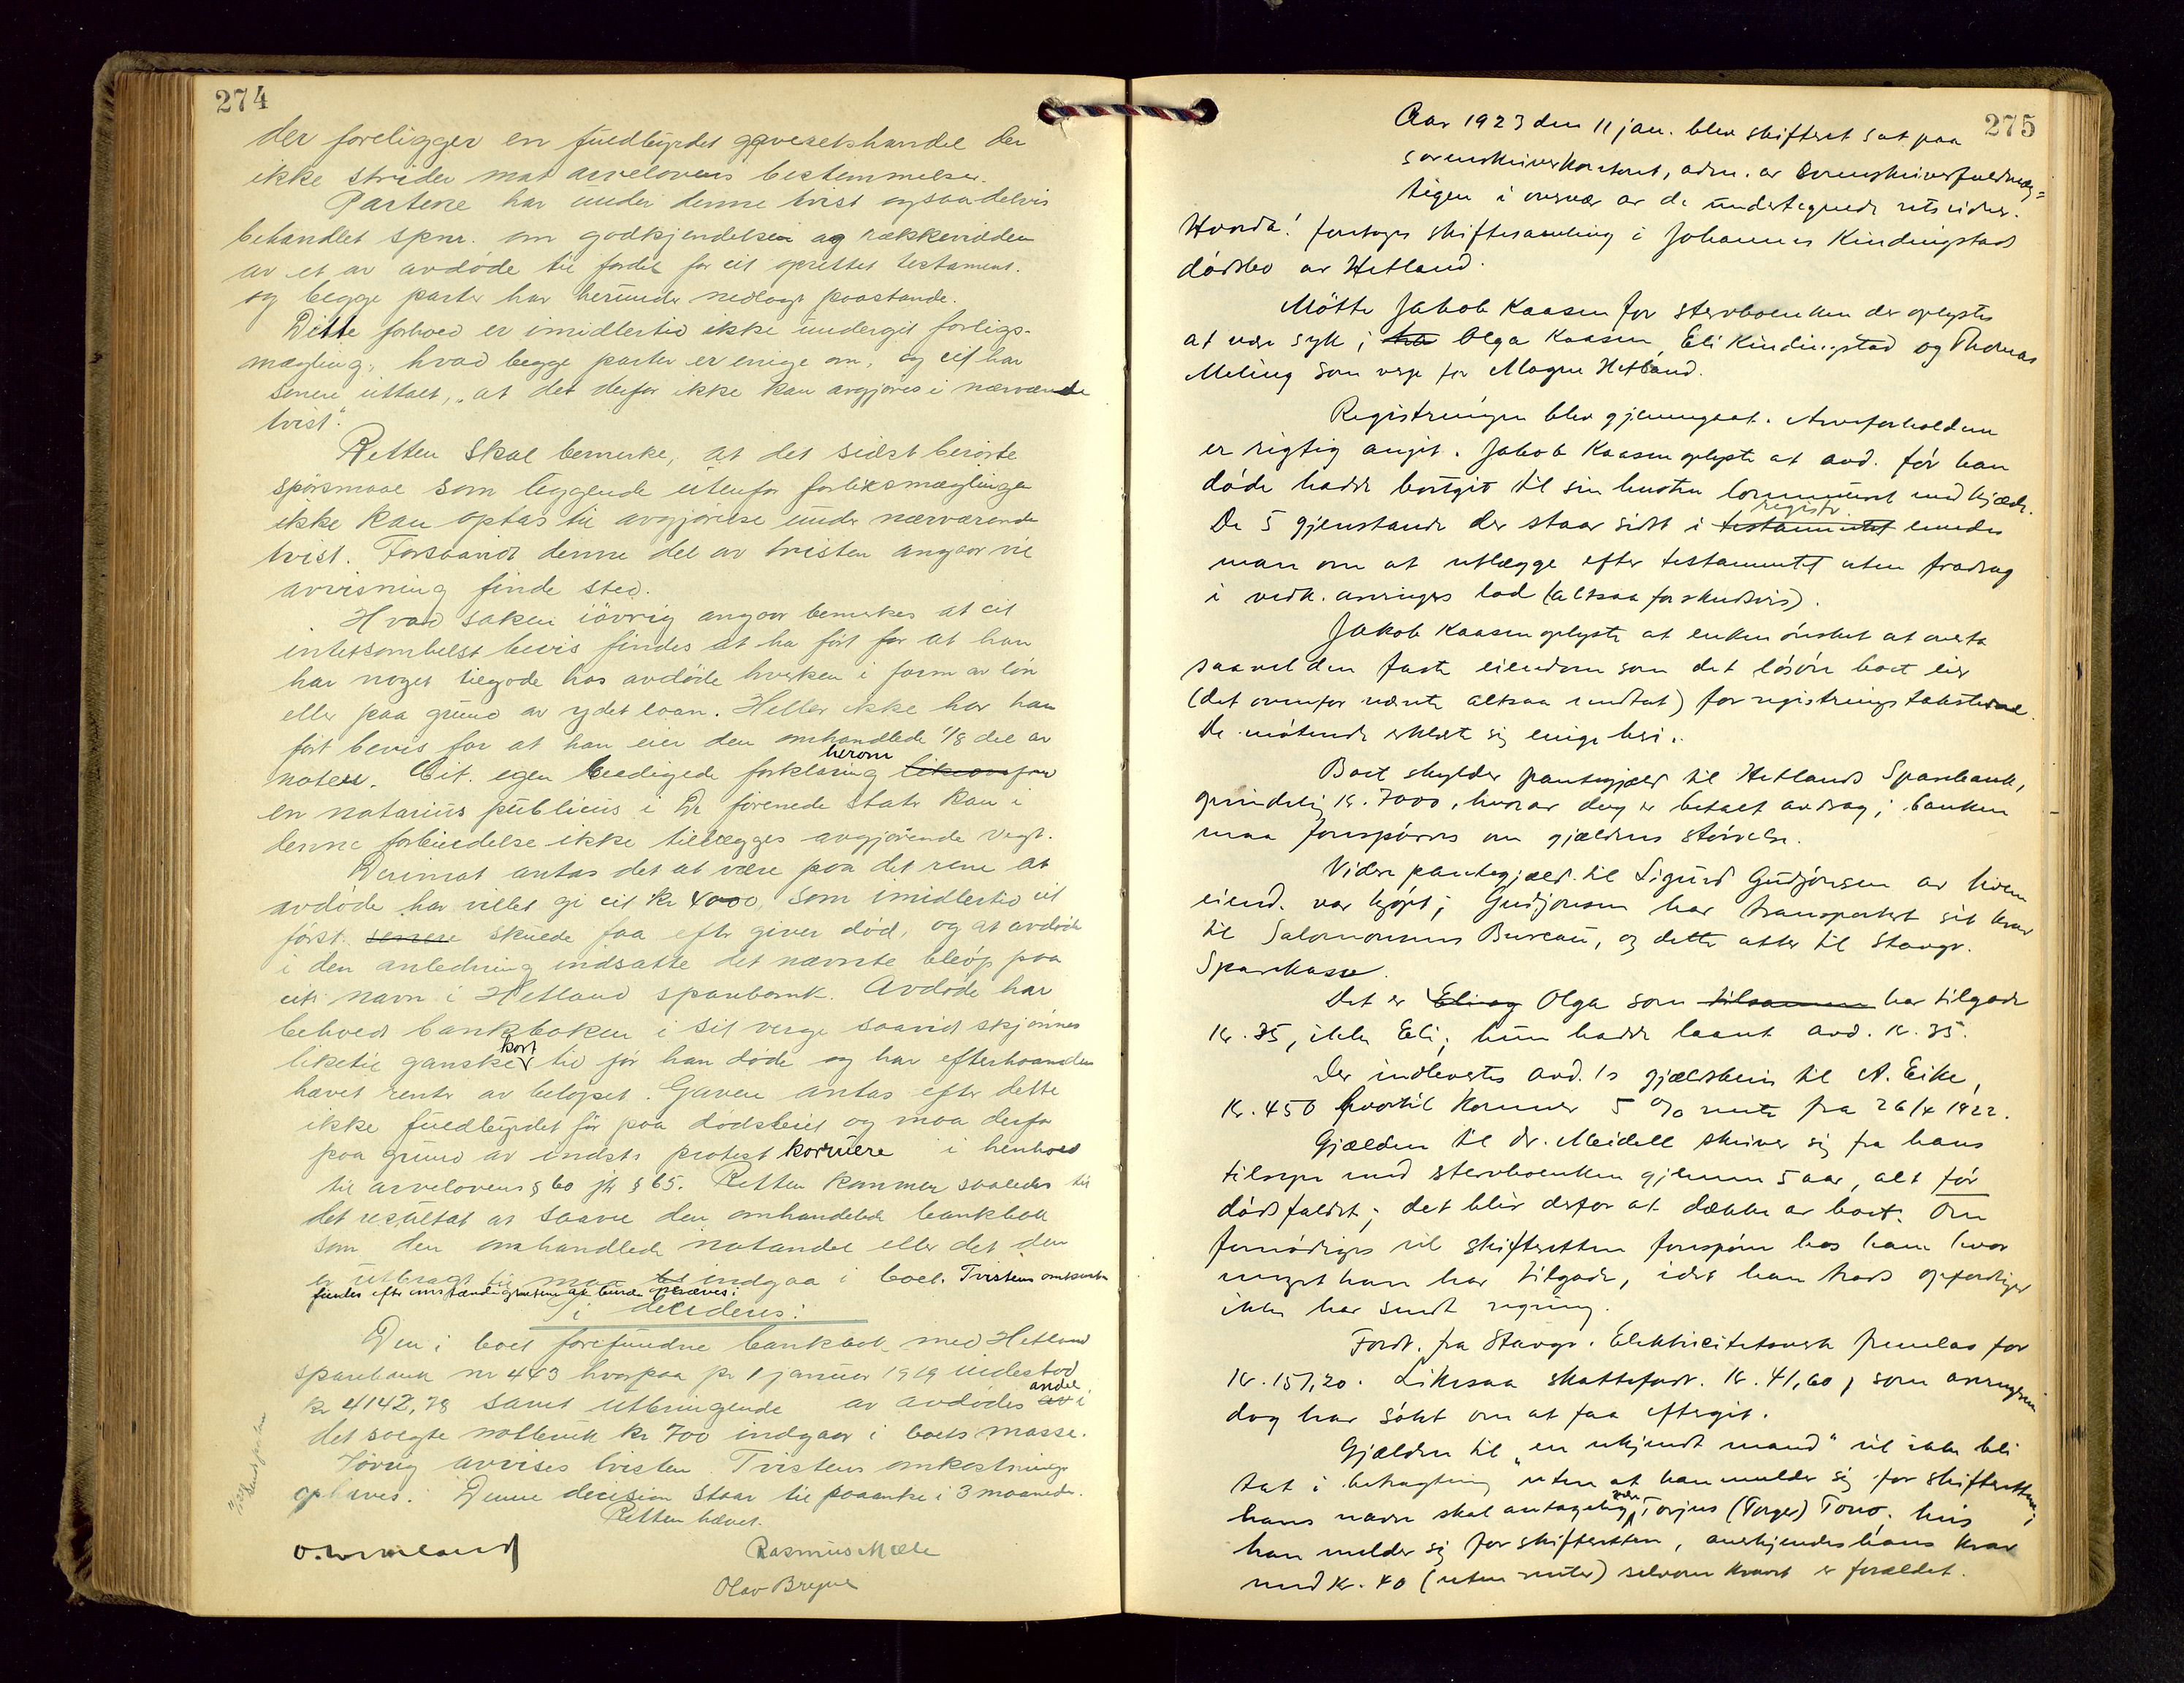 274
der foreligger en fuldbyrdet gaveretshandel der
ikke strider mot arvelovens bestemmelser.
Partene har under denne tvist ogsaa delvis
behandlet spm. om godkjendelsen og rækkevidden
av et av avdøde til fordel for cit oprettet testament.
og begge parter har herunder nedlagt paastande.
Dette forhold er imidlertid ikke undergit forligs-
mægling, hvad begge parter er enige om, og cit har
senere uttalt, "at det derfor ikke kan avgjøres i nærværende
tvist".
Retten skal bemerke, at det sidst berørte
spørsmaal som liggende utenfor forliksmæglingen
ikke kan optas til avgjørelse under nærværende
tvist. Forsaavidt denne del av tvisten angaar vil
avvisning finde sted.
Hvad saken iøvrig angaar bemerkes at cit
intetsomhelst bevis findes at ha ført for at han
har noget tilgode hos avdøde hverken i form av løn
eller paa grund av ydet laan. Heller ikke har han
ført bevis for at han eier den omhandlede 1/8 del av
noten. Cit. egen beedigede forklaring herom likeoverfor
en notarius publicus i De forenede stater kan i
denne forbindelse ikke tillægges avgjørende vegt.
Derimot antas det at være paa det rene at
avdøde har villet gi cit kr 4000, som imidlertid cit
først senere skulde faa efter giver død, og at avdøde
i den anledning indsatte det nævnte beløp paa
cits navn i Hetland sparebank. Avdøde har
behold bankboken i sit verge saavidt skjønnes
liketil ganske kort tid før han døde og har efterhaanden
hævet renter av beløpet. Gaven antas efter dette
ikke fuldbyrdet før paa dødsleiet og maa derfor
paa grund av indsts protest korrüere i henhold
til arvelovens § 60 jfr § 65. Retten kommer saaledes til
det resultat at saavel den omhandlede bankbok
som den omhandlede notandel eller det den
er utbragt til maa indgaa i boet. Tvistens omkostn
findes efter omstændighetene at burde opheves.
Ti decideres:
Den i boet forefundne bankbok med Hetland
sparebank nr 443 hvorpaa pr 1 januar 1919 indestod
kr 4142,78 samt utbringende av avdødes andel av i
det solgte notbruk kr. 700 indgaar i boets masse.
Iøvrig avvises tvisten. Tvistens omkostninger
ophæves. Denne decision staar til paaanke i 3 maaneder.
Retten hævet.
Rasmus Mæle
Olav Bryne
275
Aar 1923 den 11 jan. blev skifteret sat paa
sorenskriverkontoret, adm. av sorenskriverfuldmæg=
tigen i overvær av de undertegnede retsvidner.
Hvorda! foretoges skiftesamling i Johannes Kindingstads
dødsbo av Hetland.
Møtte Jakob Kaasen for stervboenken der oplystes
at være syk; ha Olga Kaasen, Eli Kindingstad og Thomas
Meling som verge for Magne Hetland.
Registreringen blev gjennemgaat. Arveforholdene
er rigtig angit. Jakob Kaasen oplyste at avd. før han
døde hadde bortgit til sin hustru lommeuret med kjæde.
De 5 gjenstande der staar sidst i testamentet registr enedes
man om at utlægge efter testamentet uten fradrag
i vedk. arvinges lod (altsaa forskudsvis).
Jakob Kaasen oplyste at enken ønsket at overta
saavel den faste eiendom som det løsøre boet eier
(det ovenfor nævnte altsaa undtat) for registreringstakstene.
De møtende erklærte sig enige heri.
Boet skylder pantegjæld til Hetlands Sparebank,
oprindelig kr. 7000, hvorav dog er betalt avdrag; banken
maa forespørres om gjældens størrelse.
Videre pantegjæld til Sigurd Gudjonsen av hvem
eiend. var kjøpt; Gudjonsen har transportert sit krav
til Salomonsens Bureau, og dette atter til Stavgr.
Sparekasse.
Det er Eli og Olga som tilsammen har tilgode
kr. 35, ikke Eli; hun hadde laant avd. kr. 35.
Der indlevertes avd.'s gjældsbevis til A. Eike,
kr. 450 hvortil kommer 5 % rente fra 26/4 1922.
Gjælden til dr. Meidell skriver sig fra hans
tilsyn med stervboenken gjennem 5 aar, alt før
dødsfaldet; det blir derfor at dække av boet. Om
fornødiges vil skifteretten forespørre hos ham hvor
meget han har tilgode, idet han trods opfordringer
ikke har sendt regning.
Fordr. fra Stavgr. Elektricitetsverk fremlas for
kr. 157,20. Likesaa skattefordr. kr. 41,60, som arvingene
dog har søkt om at faa eftergit.
Gjælden til "en ukjendt mand" vil ikke bli
tat i betragtning uten at han melder sig for skifteretten;
hans navn skal antagelig være Torjus (Torger) Tono. hvis
han melder sig for skifteretten, anerkjendes hans krav
med kr. 40 (uten renter) selvom kravet er forældet.